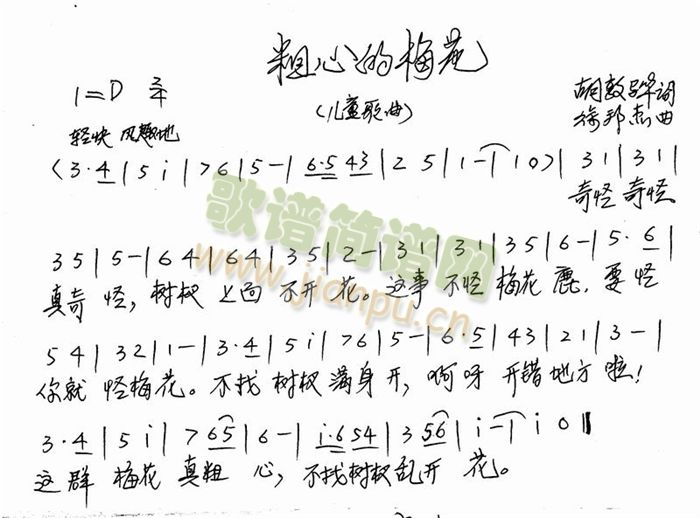 粗心的梅花
1=D 2/4
(儿童歌曲)
词
徐邦杰曲
轻快 风趣地
(3·4|5 i|7 6|5-|6·5 43|2 5|1-|1 0)|3 1|3 1|
奇怪 奇怪
3 5|5-|6 4|6 4|3 5|2-|3 1|3 1|3 5|6-|5·6|
真奇怪,树杈上面不开花。这事不怪梅花鹿,要怪
5 4|3 2|1-|3·4|5 i|7 6|5-|6·5|4 3|2 1|3-|
你就怪梅花。不找树杈满身开,啊呀开错地方啦!
3·4|5 i|7 65|6-|i·6 54|3 56|i-|i 0‖
这群梅花真粗心,不找树杈乱开花。
歌谱简谱网
www.jianpu.cn